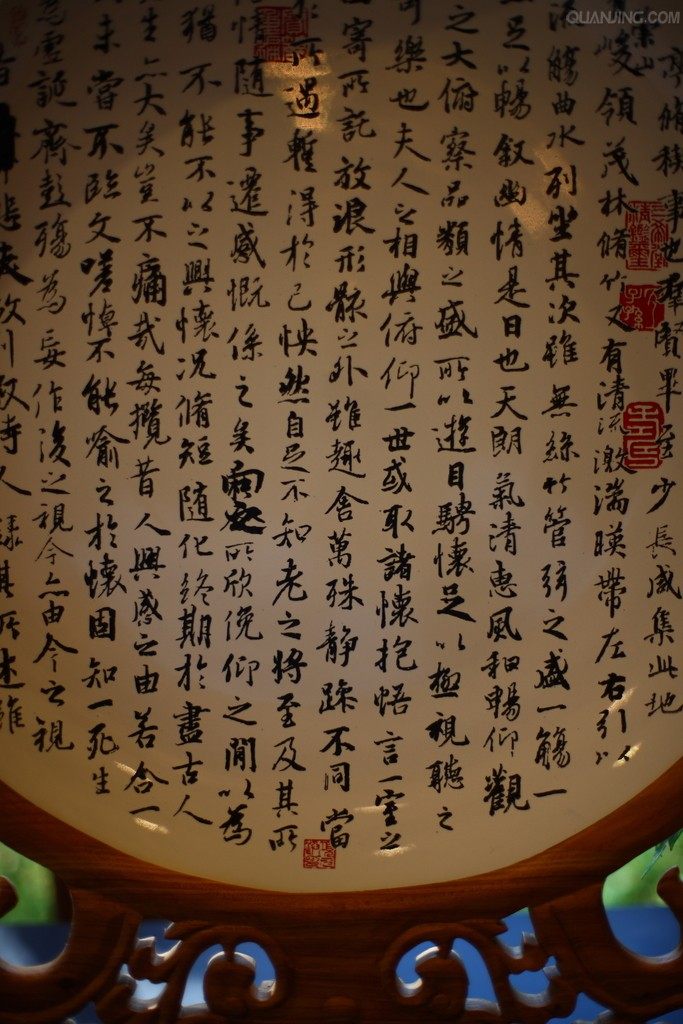 亭脩稧事也羣賢畢至少長咸集此地
崇山峻領茂林脩竹又有清流激湍暎帶左右引以
流觴曲水列坐其次雖無絲竹管弦之盛一觴一
足以暢叙幽情是日也天朗氣清惠風和暢仰觀
之大俯察品類之盛所以遊目騁懷足以極視聽之
可樂也夫人之相與俯仰一世或取諸懷抱悟言一室之
寄所託放浪形骸之外雖趣舍萬殊静躁不同當
於所遇暫得於己怏然自足不知老之將至及其所
情隨事遷感慨係之矣向之所欣俛仰之閒以為
猶不能不以之興懷況脩短隨化終期於盡古人
生亦大矣豈不痛哉每攬昔人興感之由若合一
未嘗不臨文嗟悼不能喻之於懷固知一死生
為虛誕齊彭殤為妄作後之視今亦由今之視
昔悲夫故列叙時人錄其所述雖
QUANJING.COM